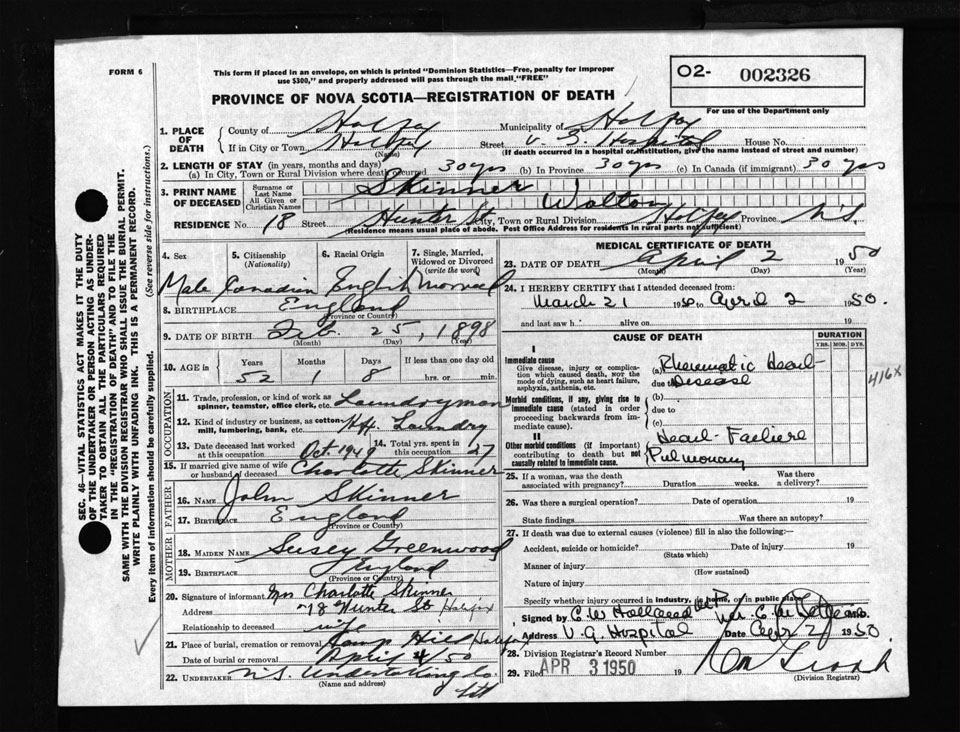 FORM 6
This form if placed in an envelope, on which is printed "Dominion Statistics—Free, penalty for improper
use $300," and properly addressed will pass through the mail, "FREE"
PROVINCE OF NOVA SCOTIA—REGISTRATION OF DEATH
O2- 002326
For use of the Department only
1. PLACE OF DEATH County of Halifax Municipality of Halifax
If in City or Town Halifax Street V. G. Hospital House No.
(Name) (If death occurred in a hospital or institution, give the name instead of street and number)
2. LENGTH OF STAY (in years, months and days)
(a) In City, Town or Rural Division where death occurred 30 yrs (b) In Province 30 yrs (c) In Canada (if immigrant) 30 yrs
3. PRINT NAME OF DECEASED Surname or Last Name Skinner
All Given or Christian Names Walton
RESIDENCE No. 18 Street Hunter St City, Town or Rural Division Halifax Province N.S.
Residence means usual place of abode. Post Office Address for residents in rural parts not sufficient)
4. Sex 5. Citizenship (Nationality) 6. Racial Origin 7. Single, Married, Widowed or Divorced (write the word)
Male Canadian English Married
8. BIRTHPLACE England
(Province or Country)
9. DATE OF BIRTH Feb. 25, 1898
(Month) (Day) (Year)
10. AGE IN Years Months Days If less than one day old
52 1 8 hrs. or min.
OCCUPATION
11. Trade, profession, or kind of work as spinner, teamster, office clerk, etc. Laundryman
12. Kind of industry or business, as cotton mill, lumbering, bank, etc. Laundry
13. Date deceased last worked at this occupation Oct. 1949 14. Total yrs. spent in this occupation 27
15. If married give name of wife or husband of deceased Charlotte Skinner
FATHER
16. NAME John Skinner
17. BIRTHPLACE England
(Province or Country)
MOTHER
18. MAIDEN NAME Susey Greenwood
19. BIRTHPLACE England
(Province or Country)
20. Signature of informant Mrs Charlotte Skinner
Address 18 Hunter St Halifax
Relationship to deceased wife
21. Place of burial, cremation or removal Camp Hill Halifax
Date of burial or removal April 4/50
22. UNDERTAKER N.S. Undertaking Co.
(Name and address) Ltd
MEDICAL CERTIFICATE OF DEATH
23. DATE OF DEATH April 2 1950
(Month) (Day) (Year)
24. I HEREBY CERTIFY that I attended deceased from:
March 21 1950 to April 2 1950.
and last saw h alive on 19
CAUSE OF DEATH DURATION
YRS. MOS. DYS.
I
Immediate cause
Give disease, injury or complication which caused death, not the mode of dying, such as heart failure, asphyxia, asthenia, etc.
(a) Rheumatic Heart
due to Disease
416X
Morbid conditions, if any, giving rise to immediate cause (stated in order proceeding backwards from immediate cause).
(b)
due to
(c)
II
Other morbid conditions (if important) contributing to death but not causally related to immediate cause.
Heart Failure
Pulmonary
25. If a woman, was the death associated with pregnancy? Duration weeks. Was there a delivery?
26. Was there a surgical operation? Date of operation 19
State findings Was there an autopsy?
27. If death was due to external causes (violence) fill in also the following:
Accident, suicide or homicide? Date of injury 19
(State which)
Manner of injury
(How sustained)
Nature of injury
Specify whether injury occurred in industry, in home, or in public place
Signed by
Address V. G. Hospital Date Apr 2 1950.
28. Division Registrar's Record Number
29. Filed APR 3 1950 19
(Division Registrar)
SEC. 46—VITAL STATISTICS ACT MAKES IT THE DUTY
OF THE UNDERTAKER OR PERSON ACTING AS UNDER-
TAKER TO OBTAIN ALL THE PARTICULARS REQUIRED
IN THE "REGISTRATION OF DEATH" AND TO FILE THE
SAME WITH THE DIVISION REGISTRAR WHO SHALL ISSUE THE BURIAL PERMIT.
WRITE PLAINLY WITH UNFADING INK. THIS IS A PERMANENT RECORD.
Every item of information should be carefully supplied. (See reverse side for instructions.)